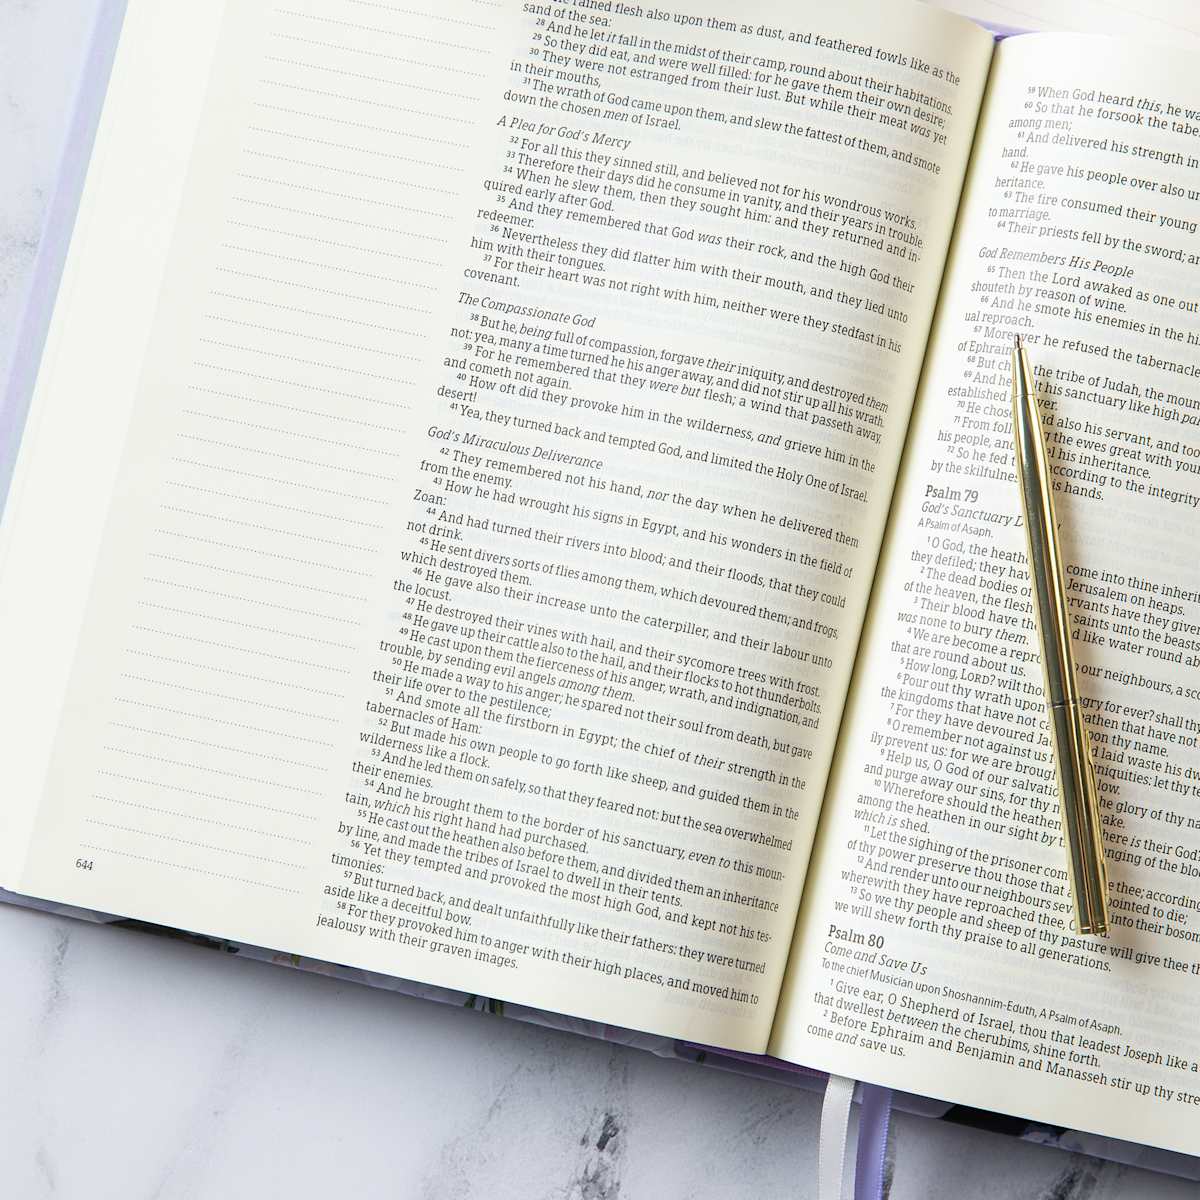 rained flesh also upon them as dust, and feathered fowls like as the
sand of the sea:
28 And he let it fall in the midst of their camp, round about their habitations.
29 So they did eat, and were well filled: for he gave them their own desire;
30 They were not estranged from their lust. But while their meat was yet
in their mouths,
31 The wrath of God came upon them, and slew the fattest of them, and smote
down the chosen men of Israel.
A Plea for God's Mercy
32 For all this they sinned still, and believed not for his wondrous works.
33 Therefore their days did he consume in vanity, and their years in trouble.
34 When he slew them, then they sought him: and they returned and in-
quired early after God.
35 And they remembered that God was their rock, and the high God their
redeemer.
36 Nevertheless they did flatter him with their mouth, and they lied unto
him with their tongues.
37 For their heart was not right with him, neither were they stedfast in his
covenant.
The Compassionate God
38 But he, being full of compassion, forgave their iniquity, and destroyed them
not: yea, many a time turned he his anger away, and did not stir up all his wrath.
39 For he remembered that they were but flesh; a wind that passeth away,
and cometh not again.
40 How oft did they provoke him in the wilderness, and grieve him in the
desert!
41 Yea, they turned back and tempted God, and limited the Holy One of Israel.
God's Miraculous Deliverance
42 They remembered not his hand, nor the day when he delivered them
from the enemy.
43 How he had wrought his signs in Egypt, and his wonders in the field of
Zoan:
44 And had turned their rivers into blood; and their floods, that they could
not drink.
45 He sent divers sorts of flies among them, which devoured them; and frogs,
which destroyed them.
46 He gave also their increase unto the caterpiller, and their labour unto
the locust.
47 He destroyed their vines with hail, and their sycomore trees with frost.
48 He gave up their cattle also to the hail, and their flocks to hot thunderbolts.
49 He cast upon them the fierceness of his anger, wrath, and indignation, and
trouble, by sending evil angels among them.
50 He made a way to his anger; he spared not their soul from death, but gave
their life over to the pestilence;
51 And smote all the firstborn in Egypt; the chief of their strength in the
tabernacles of Ham:
52 But made his own people to go forth like sheep, and guided them in the
wilderness like a flock.
53 And he led them on safely, so that they feared not: but the sea overwhelmed
their enemies.
54 And he brought them to the border of his sanctuary, even to this moun-
tain, which his right hand had purchased.
55 He cast out the heathen also before them, and divided them an inheritance
by line, and made the tribes of Israel to dwell in their tents.
56 Yet they tempted and provoked the most high God, and kept not his tes-
timonies:
57 But turned back, and dealt unfaithfully like their fathers: they were turned
aside like a deceitful bow.
58 For they provoked him to anger with their high places, and moved him to
jealousy with their graven images.
644
59 When God heard this, he wa
60 So that he forsook the tabe
among men;
61 And delivered his strength in
hand.
62 He gave his people over also u
heritance.
63 The fire consumed their young
to marriage.
64 Their priests fell by the sword; an
God Remembers His People
65 Then the Lord awaked as one out
shouteth by reason of wine.
66 And he smote his enemies in the hi
ual reproach.
67 Moreover he refused the tabernacle
of Ephraim
68 But ch the tribe of Judah, the moun
69 And he lt his sanctuary like high pal
established ver.
70 He chose id also his servant, and too
71 From foll g the ewes great with you
his people, and el his inheritance.
72 So he fed t according to the integrity
by the skilfulnes is hands.
Psalm 79
God's Sanctuary D y
A Psalm of Asaph.
1 O God, the heath come into thine inherit
they defiled; they hav Jerusalem on heaps.
2 The dead bodies o ervants have they given
of the heaven, the flesh saints unto the beasts
3 Their blood have the d like water round ab
was none to bury them.
4 We are become a repro o our neighbours, a sc
that are round about us.
5 How long, LORD? wilt thou ngry for ever? shall th
6 Pour out thy wrath upon eathen that have not
the kingdoms that have not ca pon thy name.
7 For they have devoured Ja d laid waste his dw
8 O remember not against us f niquities: let thy te
ily prevent us: for we are brough low.
9 Help us, O God of our salvatio he glory of thy na
and purge away our sins, for thy n ake.
10 Wherefore should the heathen here is their God
among the heathen in our sight by t enging of the bloo
which is shed.
11 Let the sighing of the prisoner com e thee; accordin
of thy power preserve thou those that a pointed to die;
12 And render unto our neighbours sev into their bosom
wherewith they have reproached thee,
13 So we thy people and sheep of thy pasture will give thee th
we will shew forth thy praise to all generations.
Psalm 80
Come and Save Us
To the chief Musician upon Shoshannim-Eduth, A Psalm of Asaph.
1 Give ear, O Shepherd of Israel, thou that leadest Joseph like a
that dwellest between the cherubims, shine forth.
2 Before Ephraim and Benjamin and Manasseh stir up thy stre
come and save us.